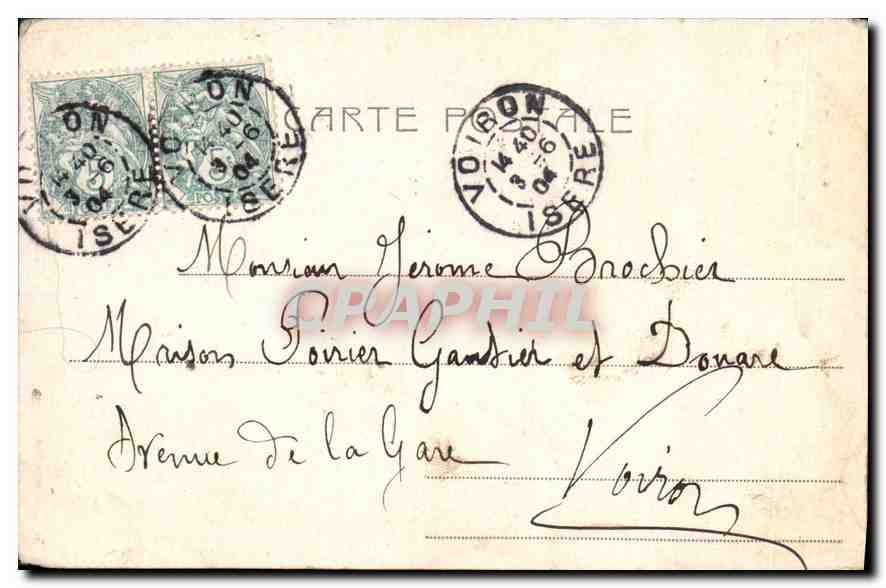 CARTE POSTALE
VOIRON
14 40
3 -6
04
ISERE
VOIRON
14 40
3 -6
04
ISERE
VOIRON
14 40
3 -6
04
ISERE
5
POST
Monsieur Jérome Brochier
CPAPHIL
Maison Poirier Gautier et Douare
Avenue de la Gare
Voiron